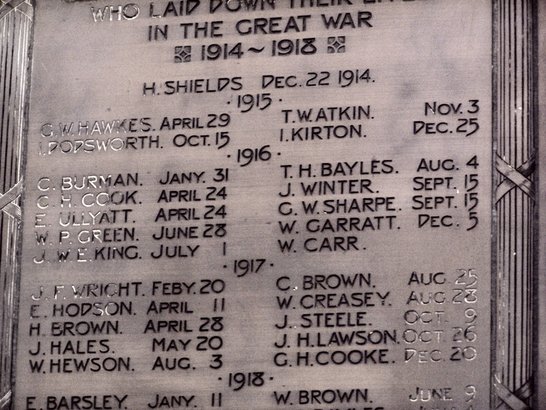 WHO LAID DOWN THEIR
IN THE GREAT WAR
1914~1918
H. SHIELDS DEC. 22 1914.
·1915·
G. W. HAWKES. APRIL 29
I. DODSWORTH. OCT. 15
T. W. ATKIN. NOV. 3
I. KIRTON. DEC. 25
·1916·
C. BURMAN. JANY. 31
C. H. COOK. APRIL 24
E. ULLYATT. APRIL 24
W. P. GREEN. JUNE 28
J. W. E. KING. JULY 1
T. H. BAYLES. AUG. 4
J. WINTER. SEPT. 15
G. W. SHARPE. SEPT. 15
W. GARRATT. DEC. 5
W. CARR.
·1917·
J. F. WRIGHT. FEBY. 20
E. HODSON. APRIL 11
H. BROWN. APRIL 28
J. HALES. MAY 20
W. HEWSON. AUG. 3
C. BROWN. AUG 25
W. CREASEY. AUG 28
J. STEELE. OCT. 9
J. H. LAWSON. OCT 26
G. H. COOKE. DEC. 20
·1918·
E. BARSLEY. JANY. 11
W. BROWN. JUNE 9